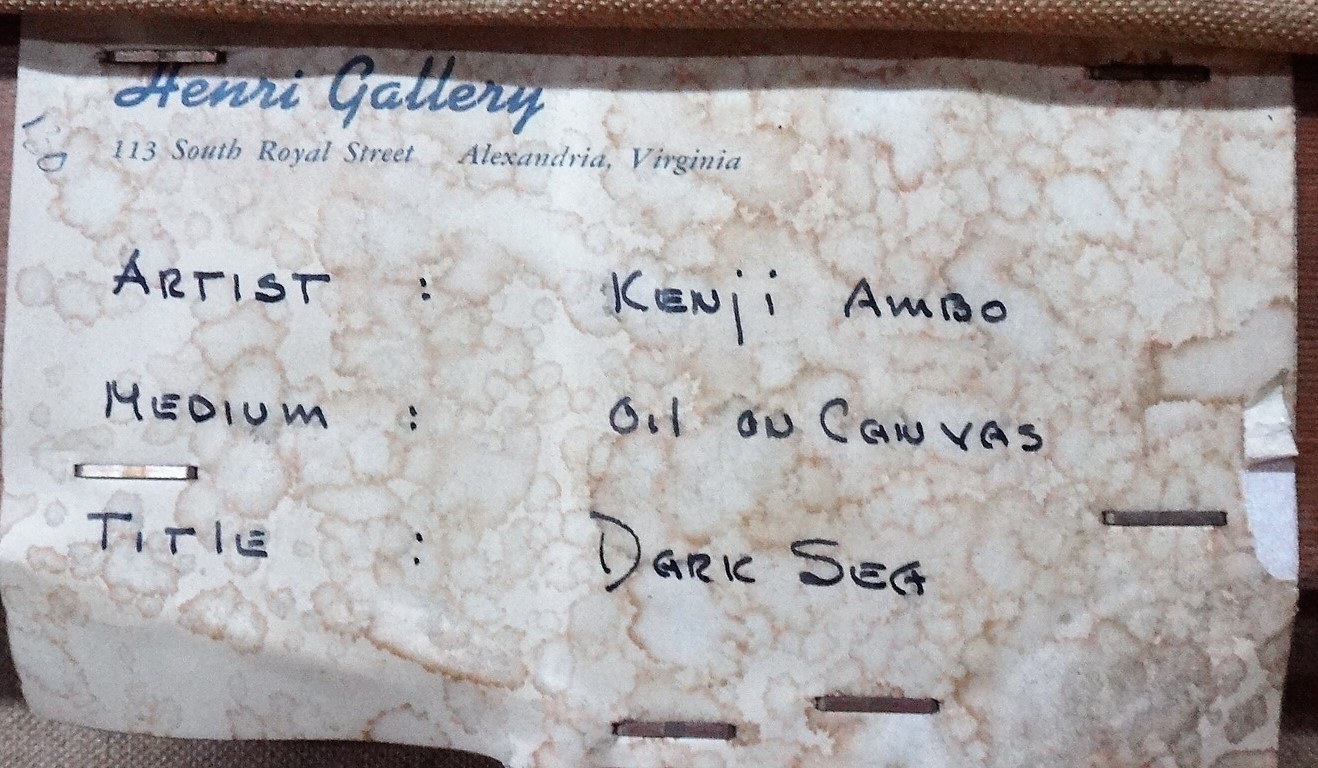 Henri Gallery
113 South Royal Street Alexandria, Virginia
ARTIST : KENji AMBO
MEDIUM : Oil ON CANVAS
TITLE : DARK SEA